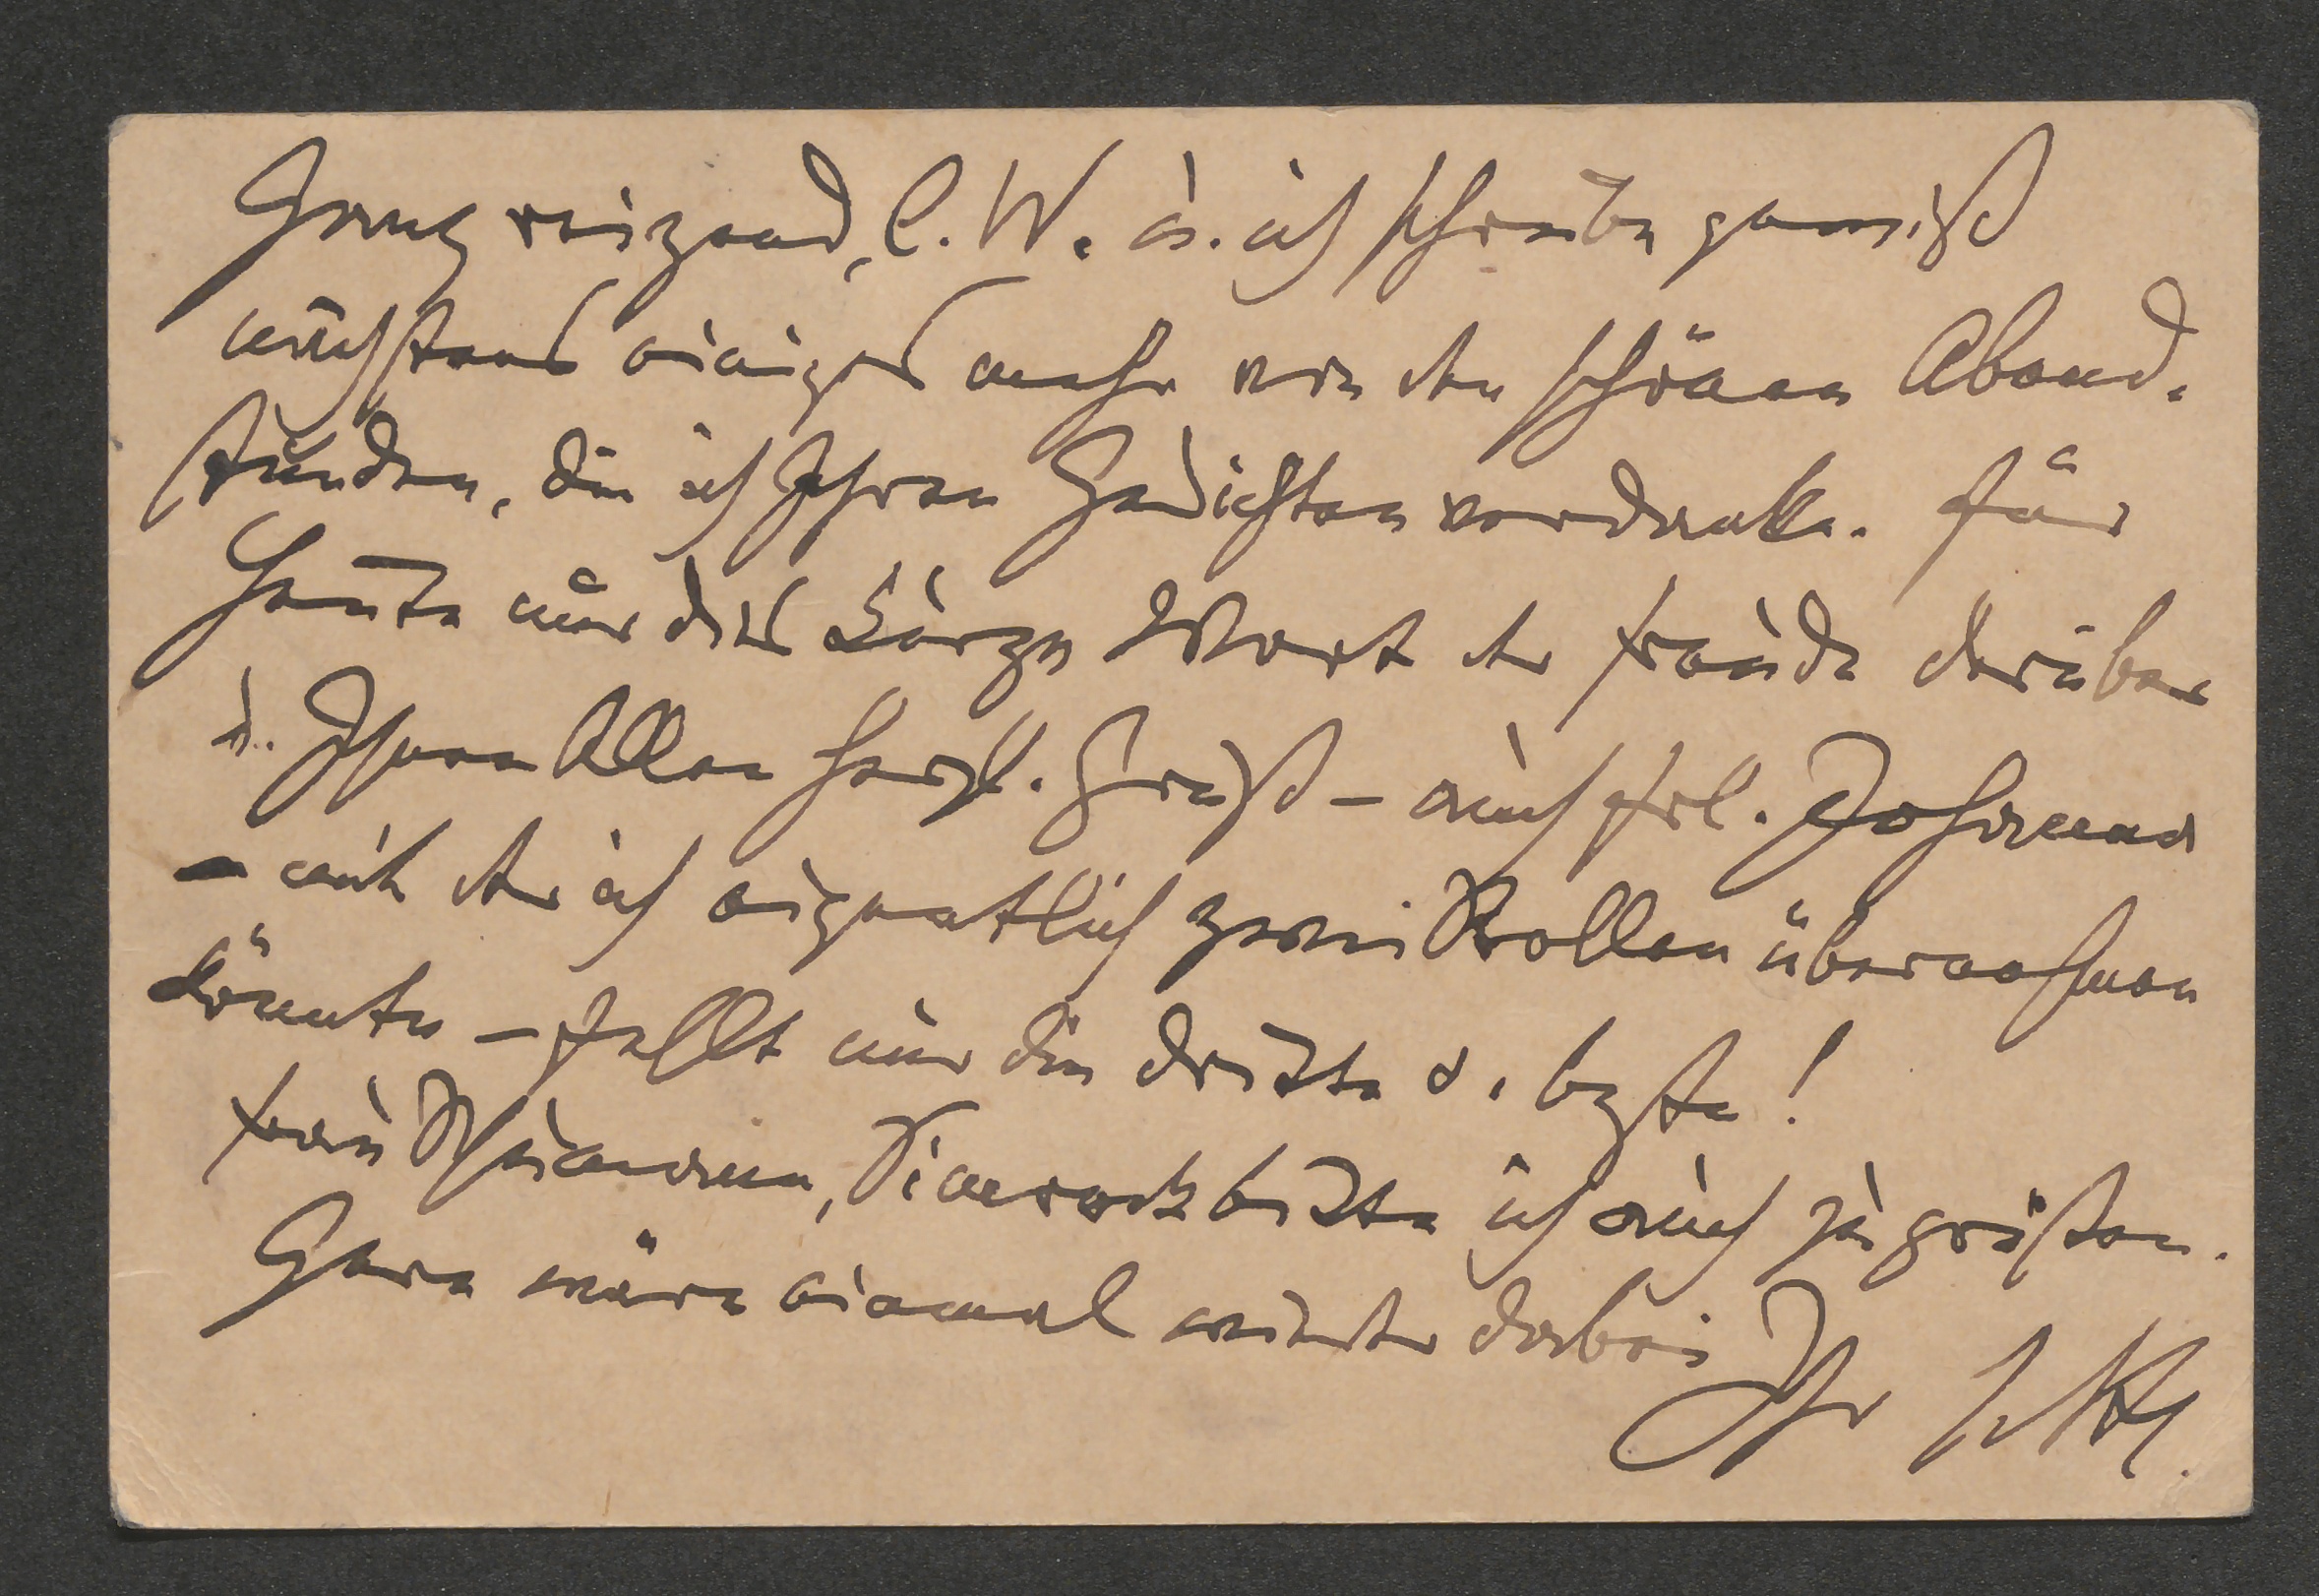 Ganz reizend, l. W. u. ich schreibe gewiß
nächstens einiges mehr von den schönen Abend-
stunden, die ich Ihren Gedichten verdanke. Für
heute nur dies kurze Wort der Freude darüber
u. Ihnen Allen herzl. Gruß – auch Frl. Johanna
– mit der ich eigentlich zwei Rollen übernehmen
könnte – fehlt nur die dritte u. letzte!
Frau bitte ich auch zu grüßen.
Gern wäre einmal wieder dabei Ihr